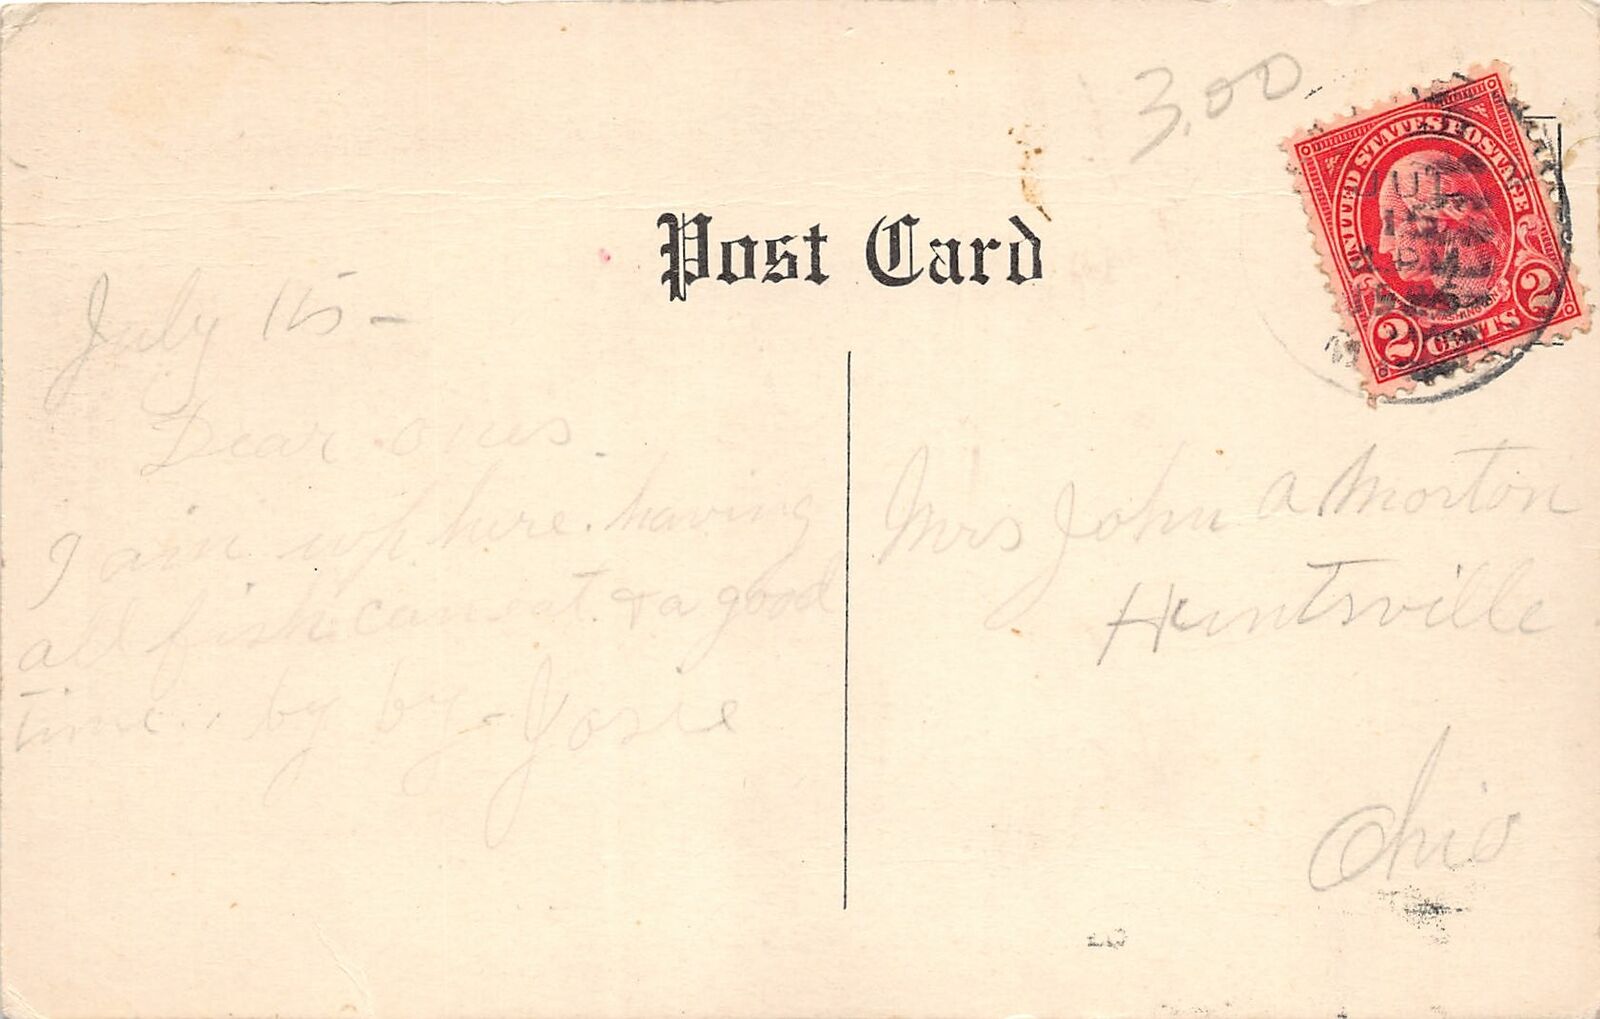 3.00
UNITED STATES POSTAGE
JUL
15
PM
WASHINGTON
2 CENTS 2
Post Card
July 15-
Dear ones.
I am up here. having
all fish can eat. & a good
time. by by - Josie
Mrs John A Morton
Huntsville
Ohio